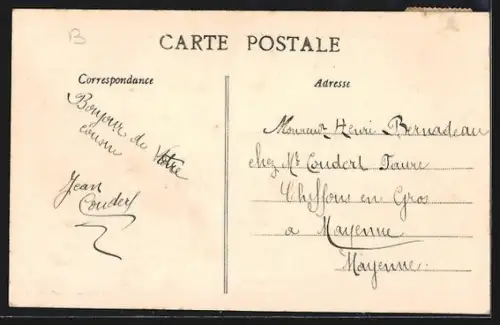 B
CARTE POSTALE
Correspondance
Adresse
Bonjour de Votre
cousin
Jean
Coudert
Monsieur Henri Bernadeau
chez Mr Coudert Faure
Chiffons en Gros
a Mayenne
Mayenne.